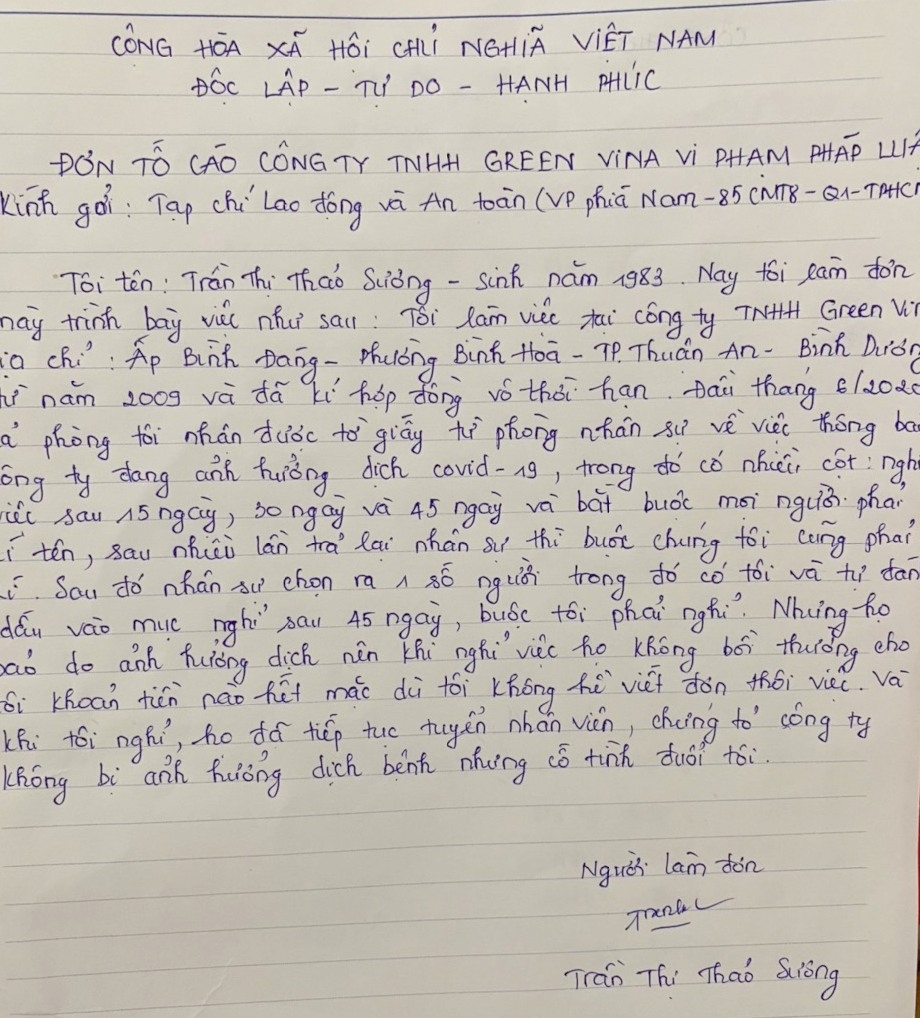 CÔNG HÒA XÃ HÔI CHỦ NGHIÃ VIÊT NAM
ĐÔC LÂP - TỰ DO - HẠNH PHÚC
ĐƠN TỐ CÁO CÔNG TY TNHH GREEN VINA VI PHẠM PHÁP LUẬ
Kính gởi: Tạp chí Lao động và An toàn (VP phiá Nam - 85 CMT8 - Q1 - TPHC
Tôi tên: Trần Thị Thảo Sương - Sinh năm 1983. Nay tôi làm đơn
này trình bày việc như sau: Tôi làm việc tại công ty TNHH Green Vin
ịa chỉ: Ấp Bình Đáng - Phường Bình Hoà - TP. Thuân An - Bình Dương
từ năm 2009 và đã kí hợp đồng vô thời hạn. Đầu tháng 6/2020
ả phòng tôi nhân được tờ giấy từ phòng nhân sự về việc thông ba
ông ty đang ảnh hưởng dịch covid-19, trong đó có nhiều cột: nghỉ
iệc sau 15 ngày, 30 ngày và 45 ngày và bắt buôc mọi người phải
í tên, sau nhiều lần trả lại nhân sự thì buôc chúng tôi cũng phải
í. Sau đó nhân sự chọn ra 1 số người trong đó có tôi và tự đán
dấu vào mục nghỉ sau 45 ngày, buôc tôi phải nghỉ. Nhưng họ
báo do ảnh hưởng dịch nên khi nghỉ việc họ không bồi thường cho
ôi khoản tiền nào hết mặc dù tôi không hề viết đơn thôi việc. Và
khi tôi nghỉ, họ đã tiếp tục tuyển nhân viên, chứng tỏ công ty
không bị ảnh hưởng dịch bệnh nhưng cố tình đuổi tôi.
Người làm đơn
Trần Thị Thảo Sương